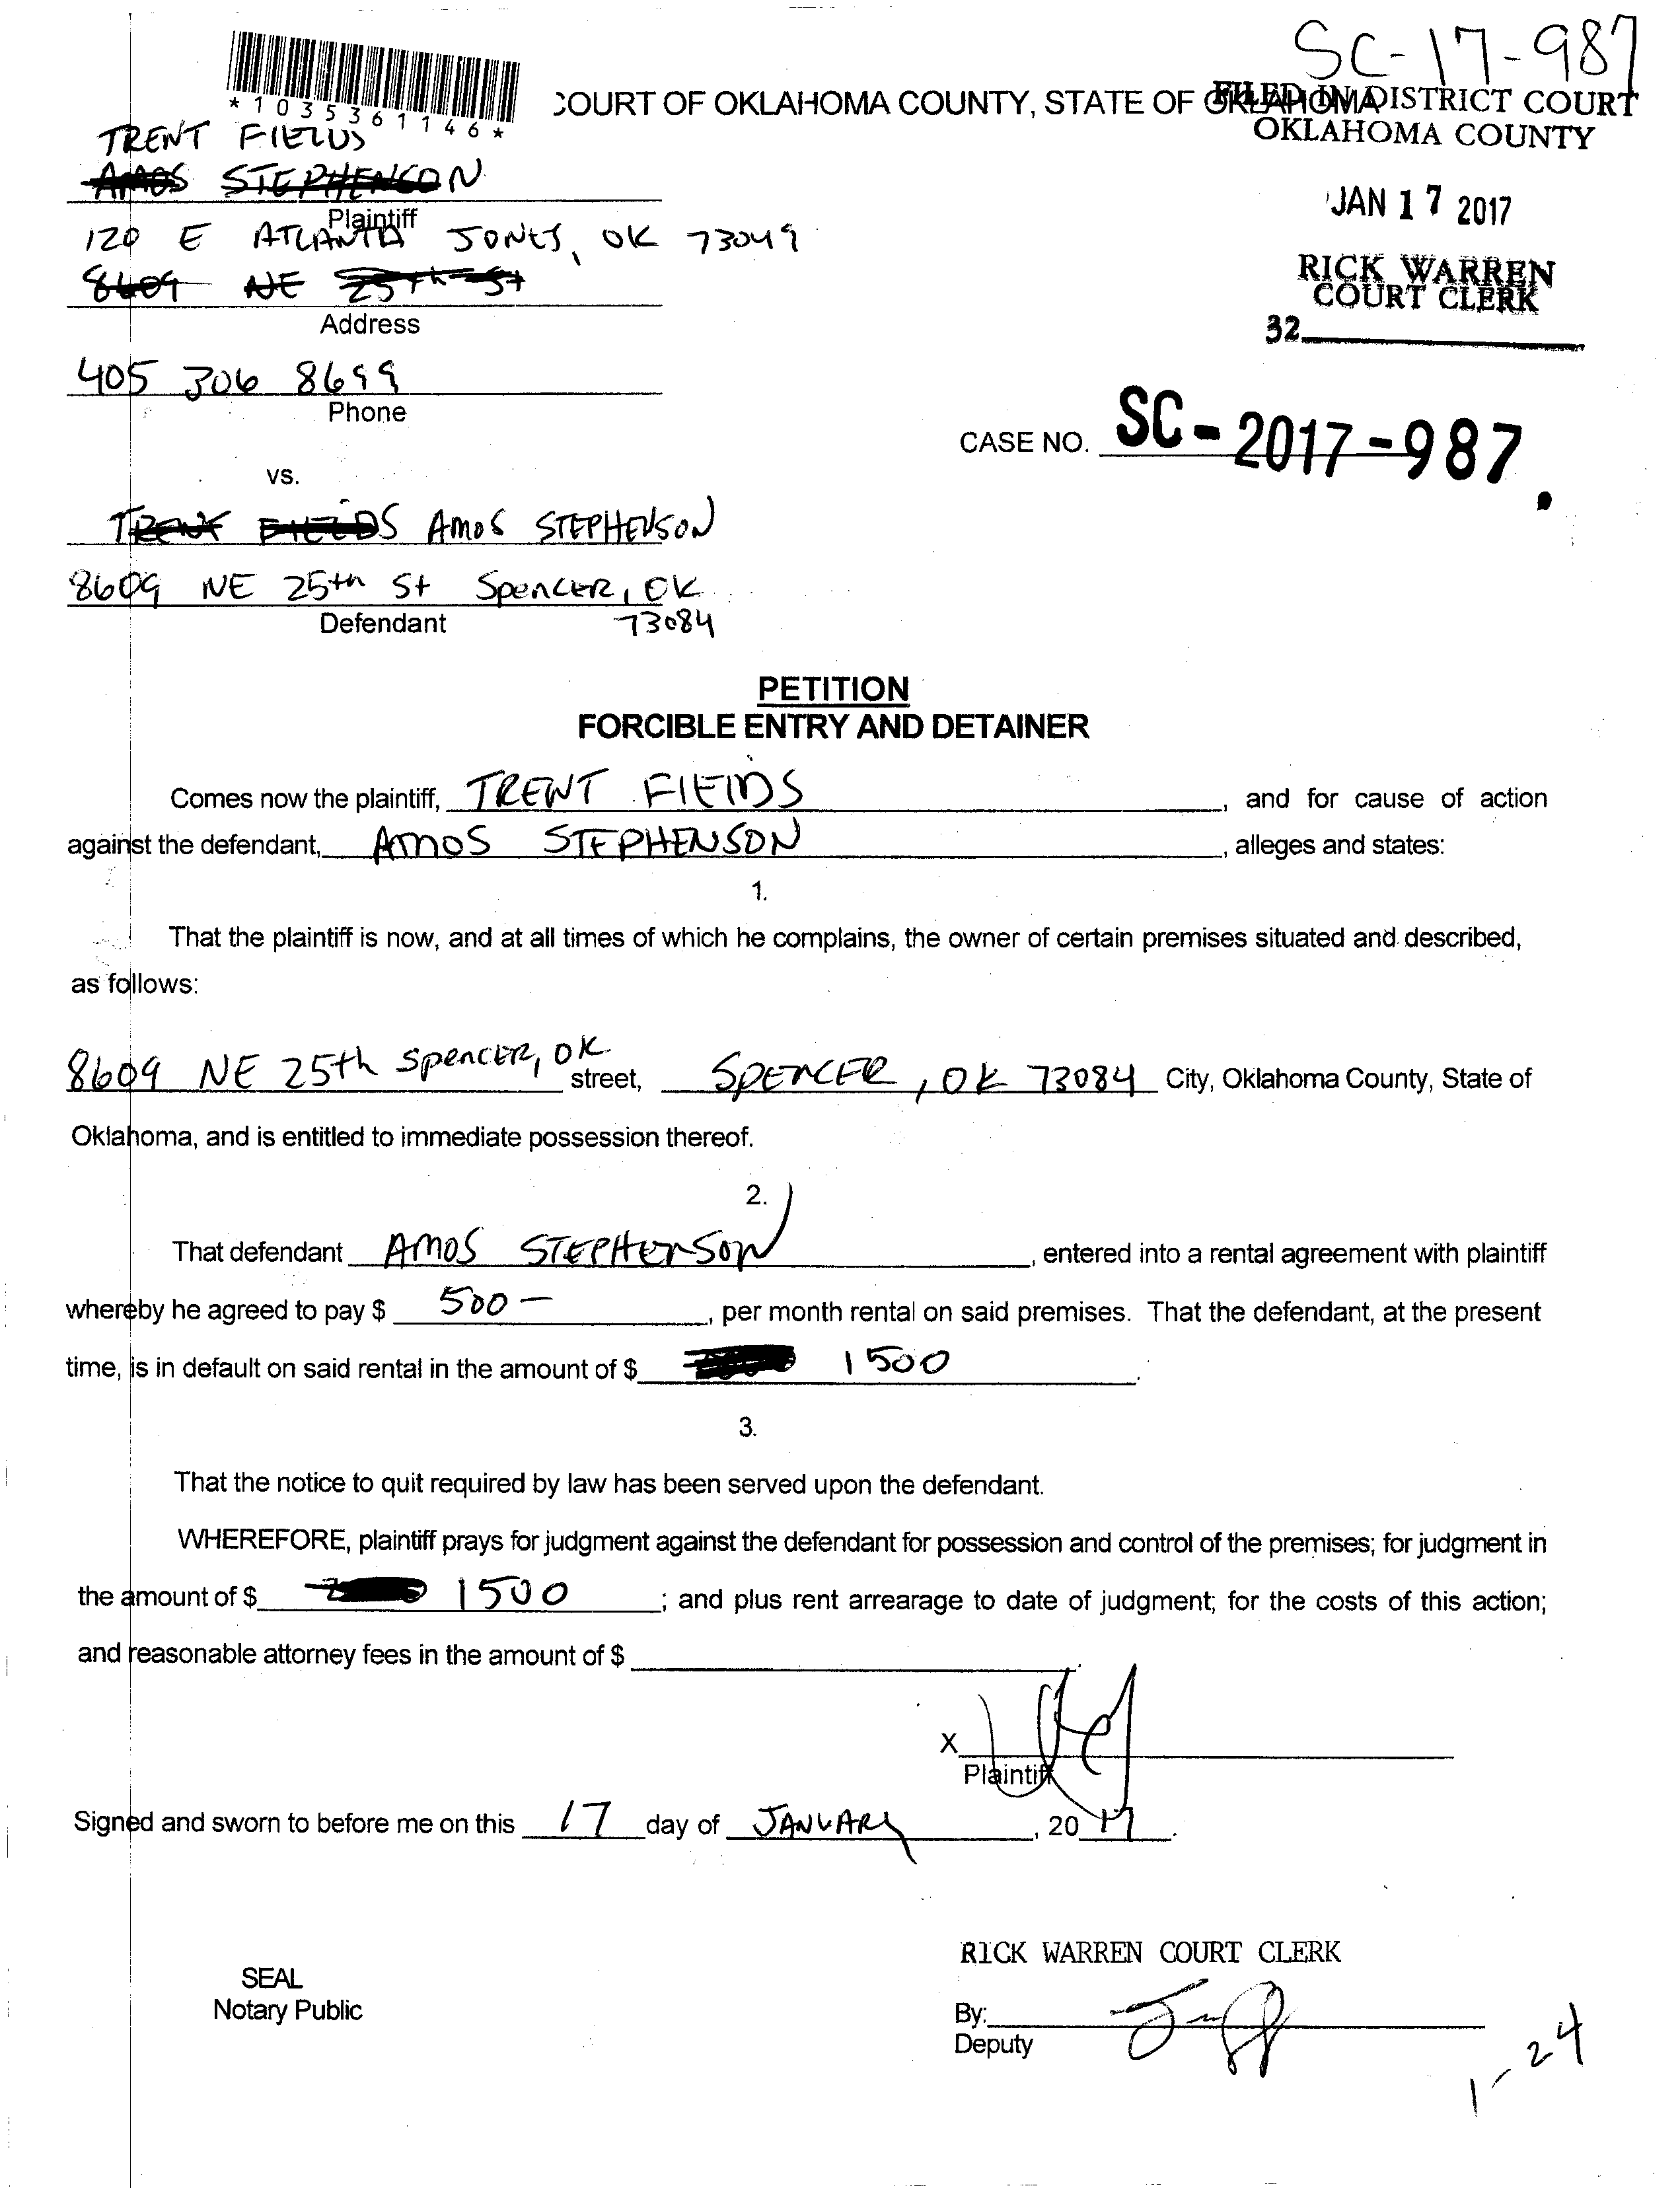 SC-17-987
*1035361146*
COURT OF OKLAHOMA COUNTY, STATE OF OKLAHOMA
FILED IN DISTRICT COURT
OKLAHOMA COUNTY
TRENT FIELDS
AMOS STEPHENSON
Plaintiff
JAN 17 2017
120 E ATLANTA JONES, OK 73049
8609 NE 25th St
Address
RICK WARREN
COURT CLERK
32
405 306 8699
Phone
CASE NO. SC-2017-987.
vs.
TRENT FIELDS AMOS STEPHENSON
8609 NE 25th St Spencer, OK
Defendant 73084
PETITION
FORCIBLE ENTRY AND DETAINER
Comes now the plaintiff, TRENT FIELDS, and for cause of action
against the defendant, AMOS STEPHENSON, alleges and states:
1.
That the plaintiff is now, and at all times of which he complains, the owner of certain premises situated and described,
as follows:
8609 NE 25th Spencer, OK street, SPENCER, OK 73084 City, Oklahoma County, State of
Oklahoma, and is entitled to immediate possession thereof.
2.
That defendant AMOS STEPHENSON, entered into a rental agreement with plaintiff
whereby he agreed to pay $ 500 -, per month rental on said premises. That the defendant, at the present
time, is in default on said rental in the amount of $ 1500.
3.
That the notice to quit required by law has been served upon the defendant.
WHEREFORE, plaintiff prays for judgment against the defendant for possession and control of the premises; for judgment in
the amount of $ 1500; and plus rent arrearage to date of judgment; for the costs of this action;
and reasonable attorney fees in the amount of $
X
Plaintiff
Signed and sworn to before me on this 17 day of JANUARY, 20 17.
RICK WARREN COURT CLERK
SEAL
Notary Public
By:
Deputy
1-24